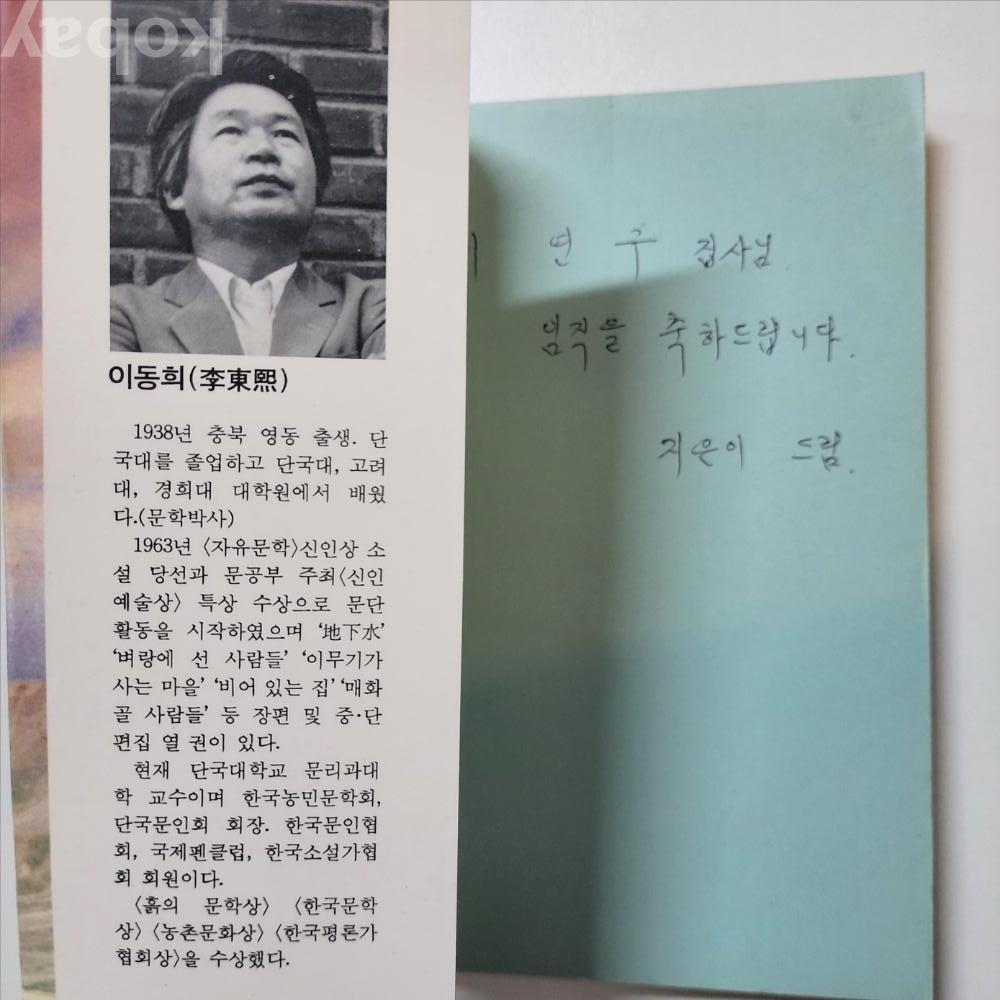 kobay
이동희(李東熙)
1938년 충북 영동 출생. 단
국대를 졸업하고 단국대, 고려
대, 경희대 대학원에서 배웠
다.(문학박사)
1963년 〈자유문학〉신인상 소
설 당선과 문공부 주최〈신인
예술상〉 특상 수상으로 문단
활동을 시작하였으며 ‘地下水’
‘벼랑에 선 사람들’ ‘이무기가
사는 마을’ ‘비어 있는 집’ ‘매화
골 사람들’ 등 장편 및 중·단
편집 열 권이 있다.
현재 단국대학교 문리과대
학 교수이며 한국농민문학회,
단국문인회 회장. 한국문인협
회, 국제펜클럽, 한국소설가협
회 회원이다.
〈흙의 문학상〉 〈한국문학
상〉 〈농촌문화상〉 〈한국평론가
협회상〉을 수상했다.
연 주 집사님.
임직을 축하드립니다.
지은이 드림.